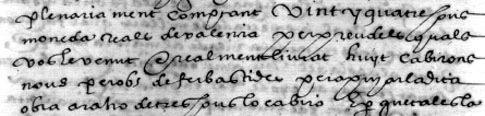 plenaria ment comptant vint y quatre sous
moneda reals de valencia per preu dels quals
vos he venut E realment liurat huyt cabirons
nous per obs de fer bastides pera pujar la dita
obra a raho de tres sous lo cabiro E per que tal es la